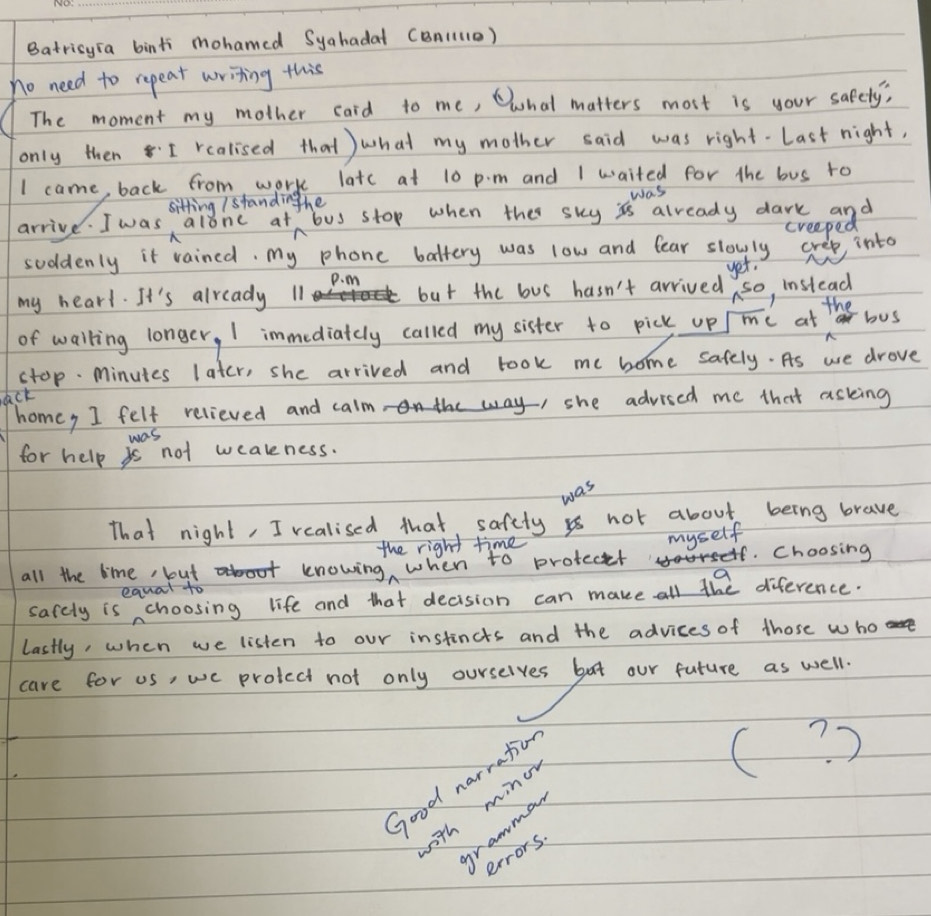 No:
Batrisyia binti Mohamed Syahadat (BN1111D)
no need to repeat writing this
(The moment my mother said to me, "what matters most is your safety",
only then I realised that) what my mother said was right. Last night,
I came back from work late at 10 p.m and I waited for the bus to
sitting / standing the was
arrive. I was alone at bus stop when the sky is already dark and
creeped
suddenly it rained. My phone battery was low and fear slowly crep into
p.m yet.
my heart. It's already 11 o'clock but the bus hasn't arrived so, instead
the
of waiting longer, I immediately called my sister to pick up me at bus
stop. Minutes later, she arrived and took me home safely. As we drove
back
home, I felt relieved and calm on the way, she advised me that asking
was
for help is not weakness.
was
That night, I realised that safety is not about being brave
the right time myself
all the time, but about knowing when to protect yourself. Choosing
equal to a
safety is choosing life and that decision can make all the diference.
Lastly, when we listen to our instincts and the advices of those who
care for us, we protect not only ourselves but our future as well.
( ? )
Good narration
with minor
grammar
errors.